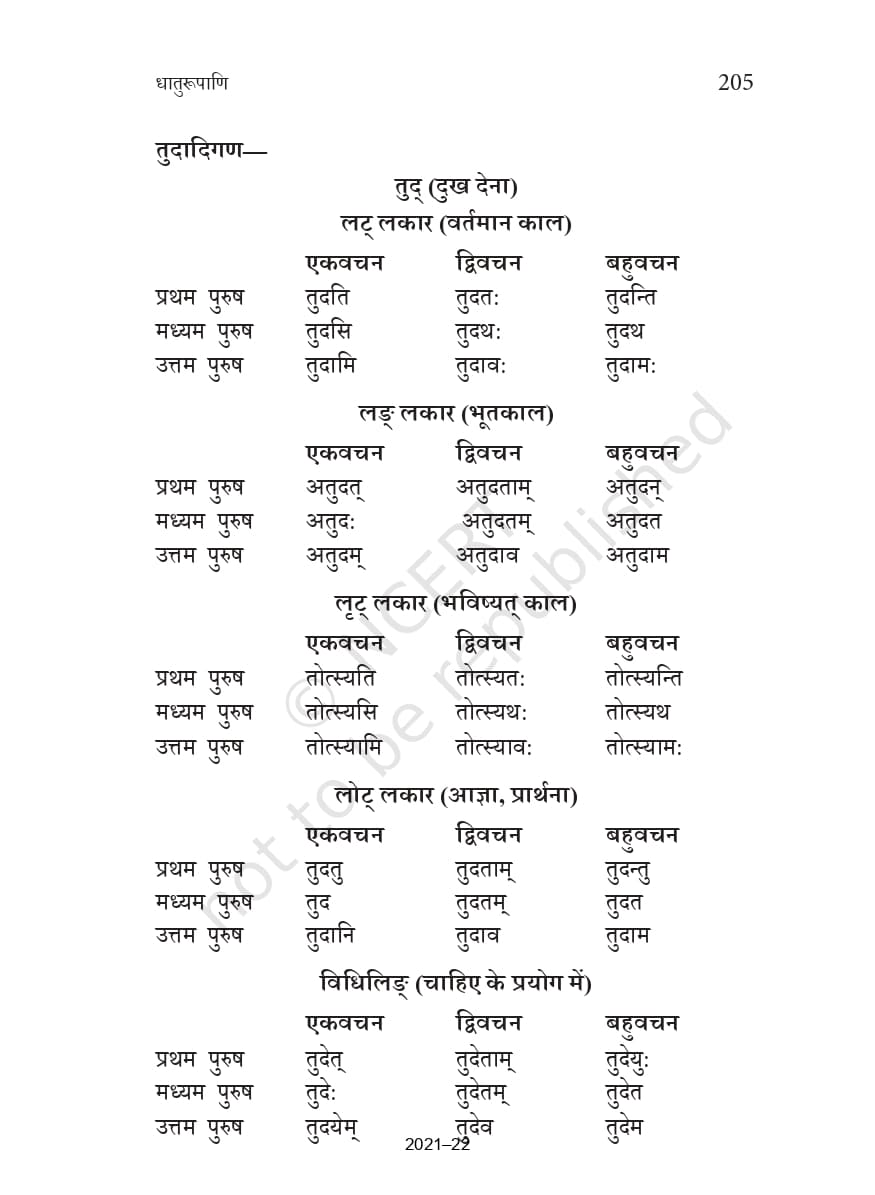 धातुरूपाणि 205
तुदादिगण—
तुद् (दुख देना)
लट् लकार (वर्तमान काल)
एकवचन द्विवचन बहुवचन
प्रथम पुरुष तुदति तुदतः तुदन्ति
मध्यम पुरुष तुदसि तुदथः तुदथ
उत्तम पुरुष तुदामि तुदावः तुदामः
लङ् लकार (भूतकाल)
एकवचन द्विवचन बहुवचन
प्रथम पुरुष अतुदत् अतुदताम् अतुदन्
मध्यम पुरुष अतुदः अतुदतम् अतुदत
उत्तम पुरुष अतुदम् अतुदाव अतुदाम
लृट् लकार (भविष्यत् काल)
एकवचन द्विवचन बहुवचन
प्रथम पुरुष तोत्स्यति तोत्स्यतः तोत्स्यन्ति
मध्यम पुरुष तोत्स्यसि तोत्स्यथः तोत्स्यथ
उत्तम पुरुष तोत्स्यामि तोत्स्यावः तोत्स्यामः
लोट् लकार (आज्ञा, प्रार्थना)
एकवचन द्विवचन बहुवचन
प्रथम पुरुष तुदतु तुदताम् तुदन्तु
मध्यम पुरुष तुद तुदतम् तुदत
उत्तम पुरुष तुदानि तुदाव तुदाम
विधिलिङ् (चाहिए के प्रयोग में)
एकवचन द्विवचन बहुवचन
प्रथम पुरुष तुदेत् तुदेताम् तुदेयुः
मध्यम पुरुष तुदेः तुदेतम् तुदेत
उत्तम पुरुष तुदयेम् तुदेव तुदेम
2021–22
© NCERT
not to be republished